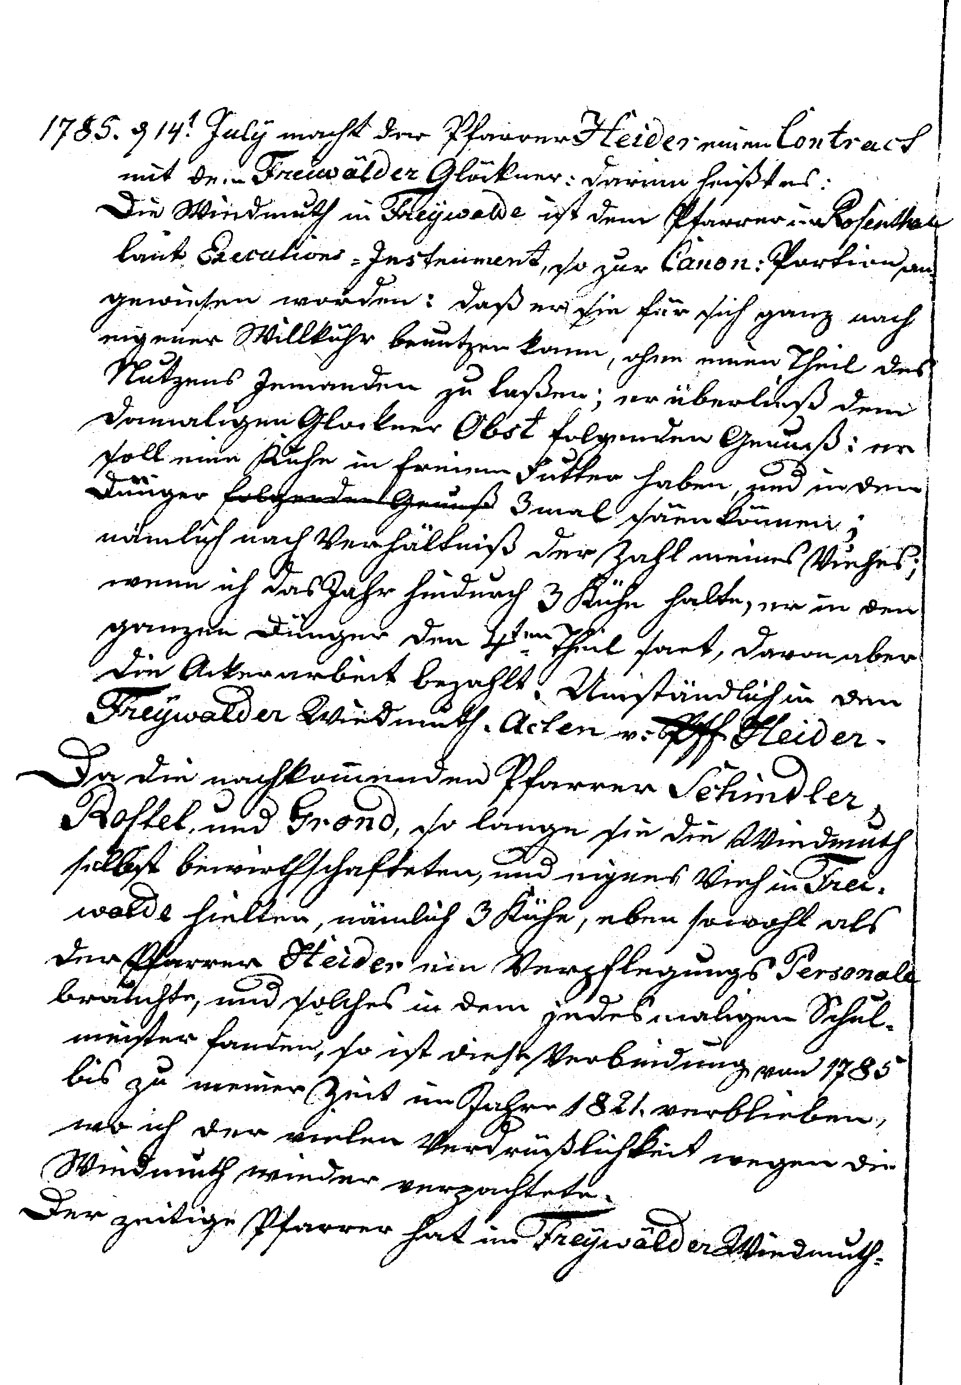 1785. d 14t July macht der Pfarrer Heider einen Contract
mit dem Freiwälder Glöckner: darinn heißt es:
Die Wiedmuth in Freÿwalde ist dem Pfarrer in Rosenthal
laut Executions-Instrument, so zur Canon: Portion an
gewiesen worden: daß er sie für sich ganz nach
eigener Willkühr benutzen kann, ohne einen Theil des
Nutzens Jemanden zu laßen; er überließ dem
damaligen Glöckner Obst folgenden Genuß: er
soll eine Kuhe in freiem Futter haben, und in den
Dünger folgenden Genuß 3 mal säen können;
nämlich nach Verhältniß der Zahl meines Viehes;
wenn ich das Jahr hindurch 3 Kühe halte, er in den
ganzen Dünger den 4ten Theil säet, davon aber
die Ackerarbeit bezahlt. Umständlich in den
Freÿwalder Wiedmuth-Acten v: Pff Heider.
Da die nachkommenden Pfarrer Schindler,
Rostel, und Grond, so lange sie die Wiedmuth
selbst bewirthschafteten, und eignes Vieh in Frei-
walde hielten, nämlich 3 Kühe, eben sowohl als
der Pfarrer Heider ein Verpflegungs Personale
brauchte, und solches in dem jedesmaligen Schul-
meister fanden, so ist diese Verbindung von 1785
bis zu meiner Zeit im Jahre 1821. verblieben,
wo ich der vielen Verdrüßlichkeit wegen die
Wiedmuth wieder verpachtete.
Der zeitige Pfarrer hat im Freÿwälder Wiedmuth-